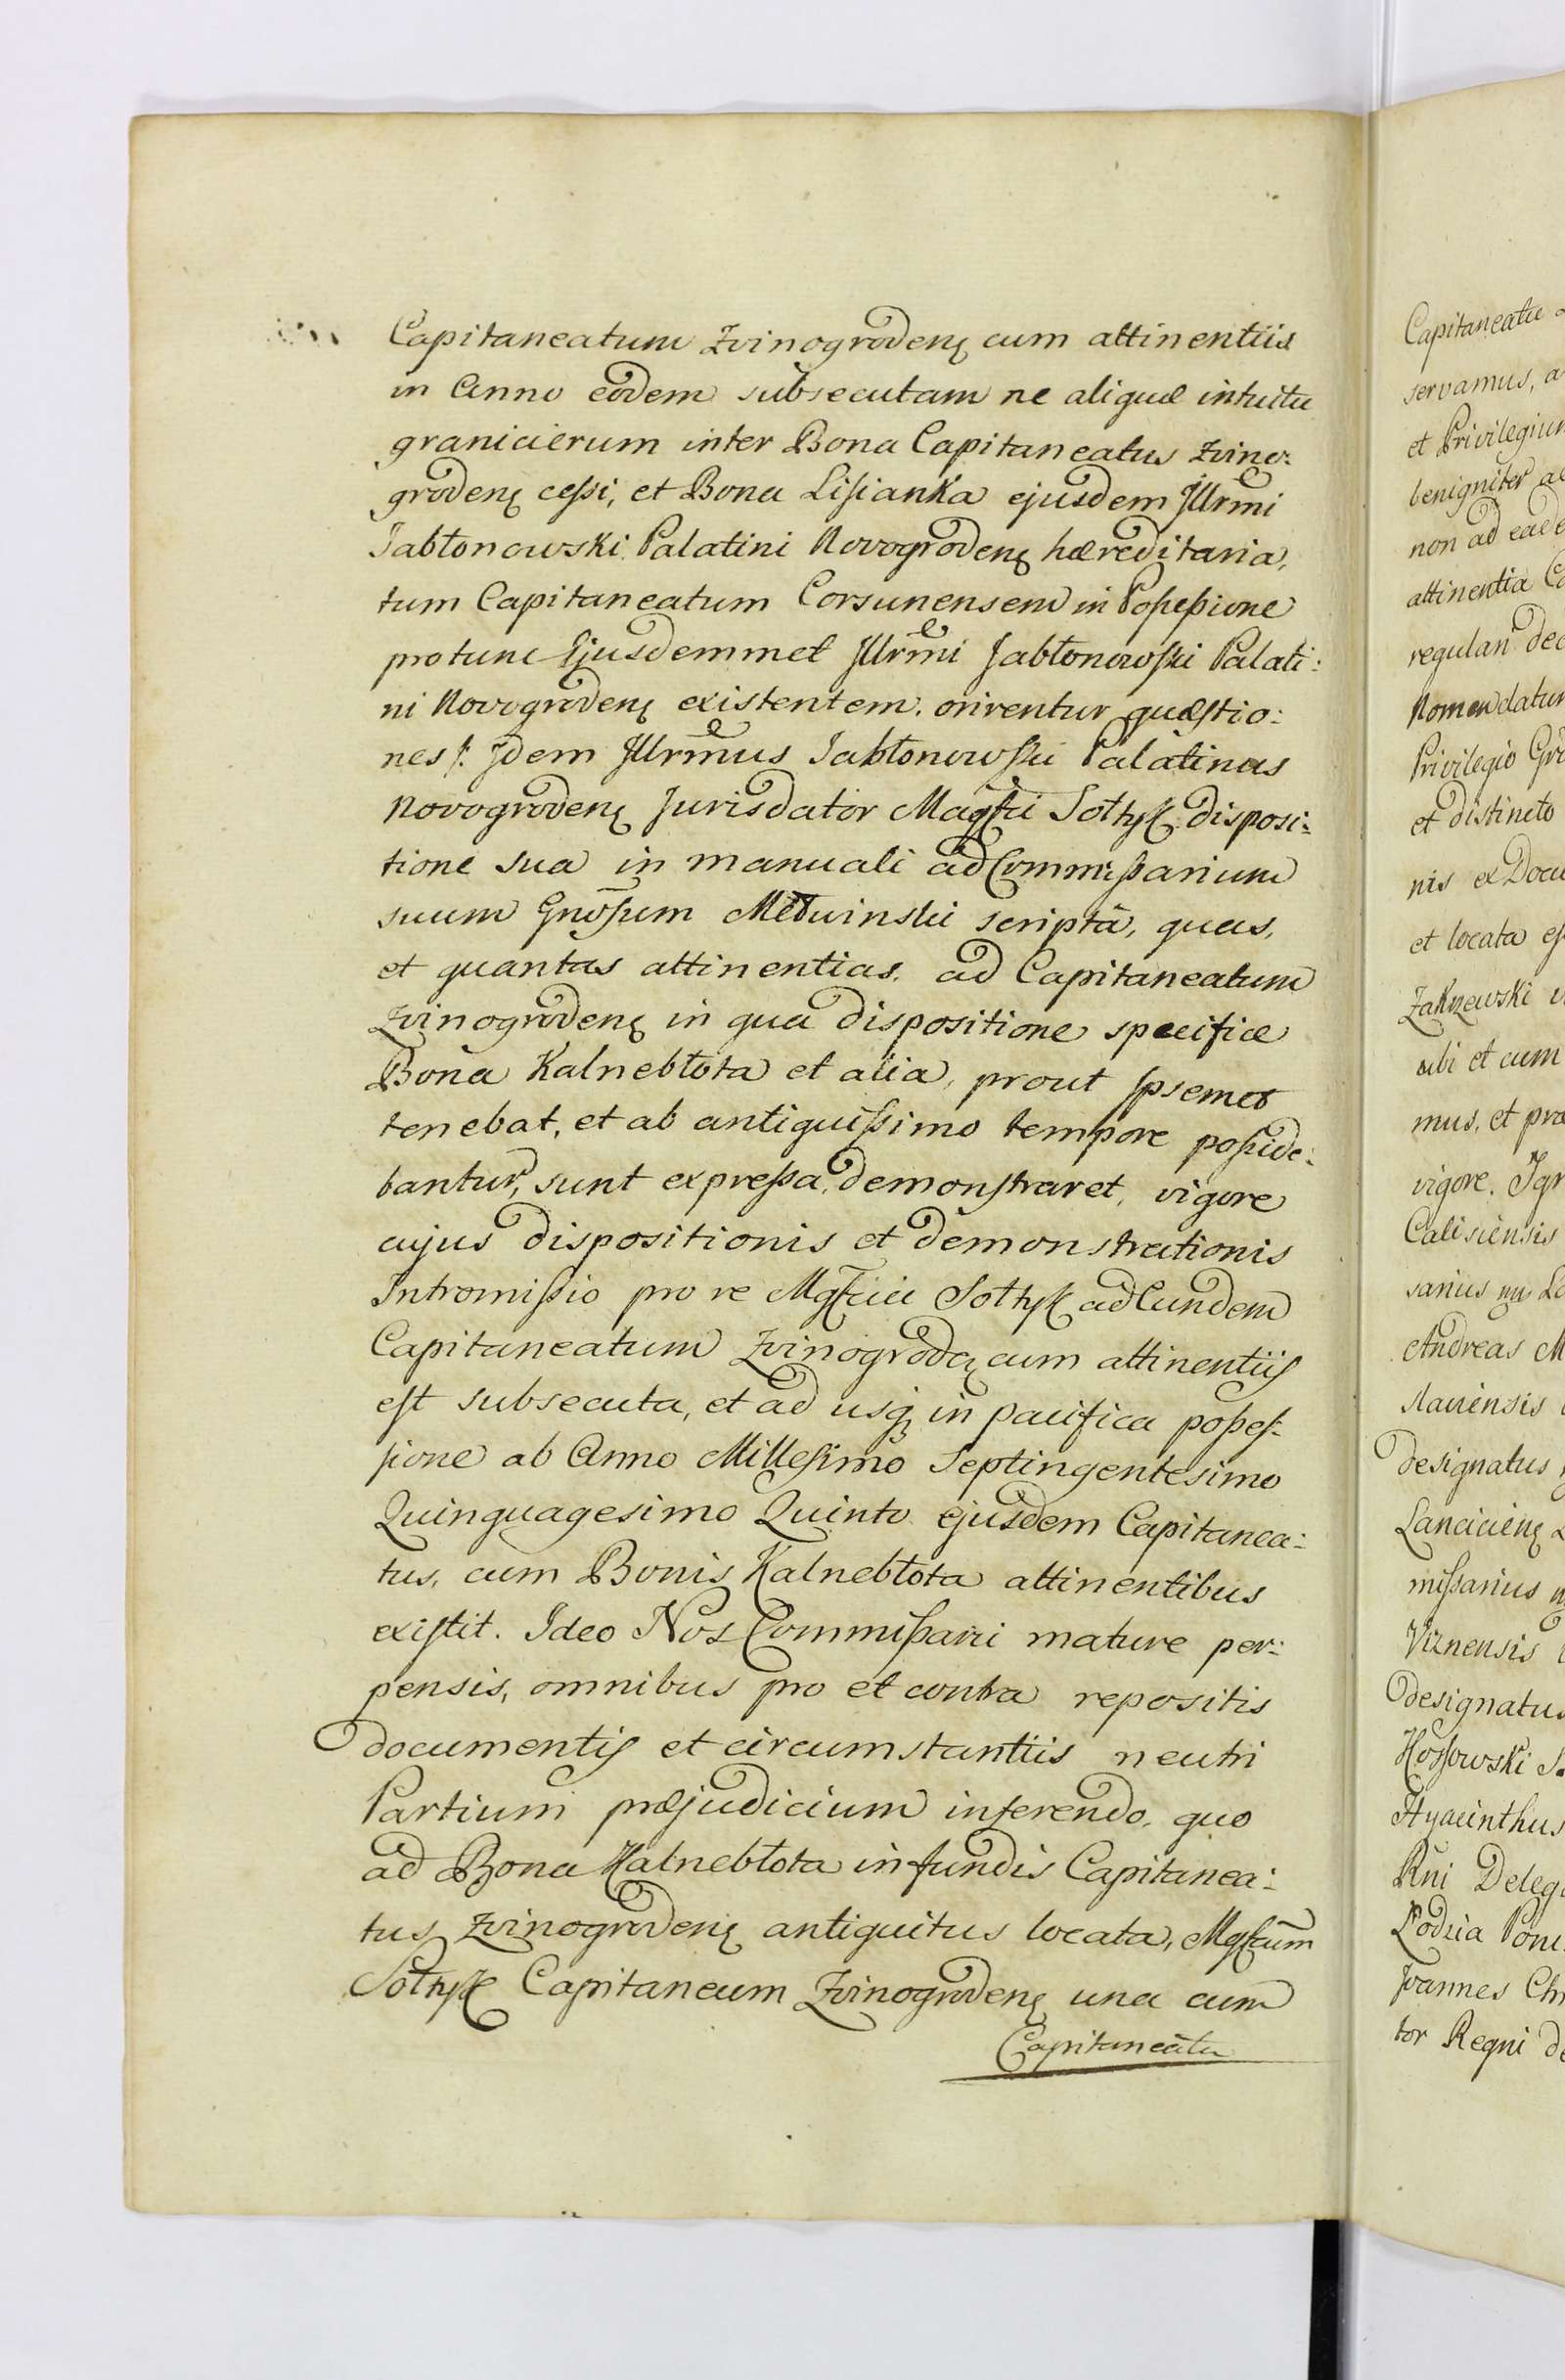 Capitaneatum Zvinogrodenę cum attinentiis
in Anno eodem subsecutam ne aliquæ intuitu
granicierum inter Bona Capitaneatus Zvino:
grodenę cessi, et Bona Lisianka ejusdem Illrmi
Jabłonowski Palatini Novogrodenę hæreditaria,
tum Capitaneatum Corsunensem in Possessione
protunc Ejusdemmet Illrmi Jabłonowski Palati:
ni Novogrodenę existentem. orirentur quæstio:
nes /: Idem Illrmus Jabłonowski Palatinus
Novogrodenę Jurisdator Magfci Sołtyk disposi:
tione sua in manuali ad Commissarium
suum Gnosum Medwinski scripta, quas,
et quantas attinentias. ad Capitaneatum
Zvinogrodenę in qua dispositione specifice
Bona Kalnebłota et alia, prout Ipsemet
tenebat, et ab antiquissimo tempore posside:
bantur, sunt expressa, demonstraret, vigore
cujus dispositionis et demonstrationis
Intromissio pro re Mgfcii Sołtyk ad Eundem
Capitaneatum Zvinogrodę cum attinentiis
est subsecuta, et ad usq in pacifica posses:
sione ab Anno Millesimo Septingentesimo
Quinquagesimo Quinto ejusdem Capitanea:
tus, cum Bonis Kalnebłota attinentibus
existit. Ideo Nos Commissarii mature per:
pensis, omnibus pro et contra repositis
documentis et circumstantiis neutri
Partium præjudicium inferendo, quo
ad Bona Kalnebłota in fundis Capitanea:
tus Zvinogrodenę antiquitus locata, Mgfcum
Sołtyk Capitaneum Zvinogrodenę una cum
Capitaneatu
Capitaneatu
servamus, a
et Privilegium
benigniter al
non ad eade
attinentia Ca
regulari dec
Nomen datur
Privilegio Gro
et distincto
nis ex Docu
et locata es
Zakrzewski
ubi et cum
mus, et præ
vigore. Ign
Calisiensis
sarius mp
Andreas M
slaviensis
designatus
Lanciciene
missarius
Viznensis
designatus
Hossowski
Hyacinthus
Rni Delega
Łodzia Poni
Joannes Ch
tor Regni de